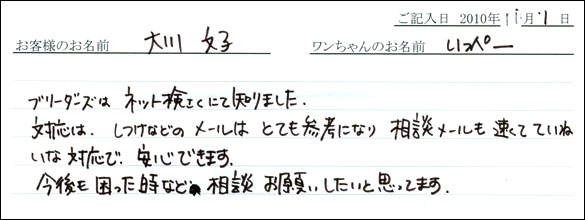 ご記入日 2010年11月1日
お客様のお名前 大川 文子 ワンちゃんのお名前 いっぺー
ブリーダーズは ネット検さくにて知りました.
対応は、しつけなどの メールは とても参考になり 相談メールも 速くてていね
いな 対応で、安心できます.
今後も 困った時など 相談 お願いしたいと思ってます.